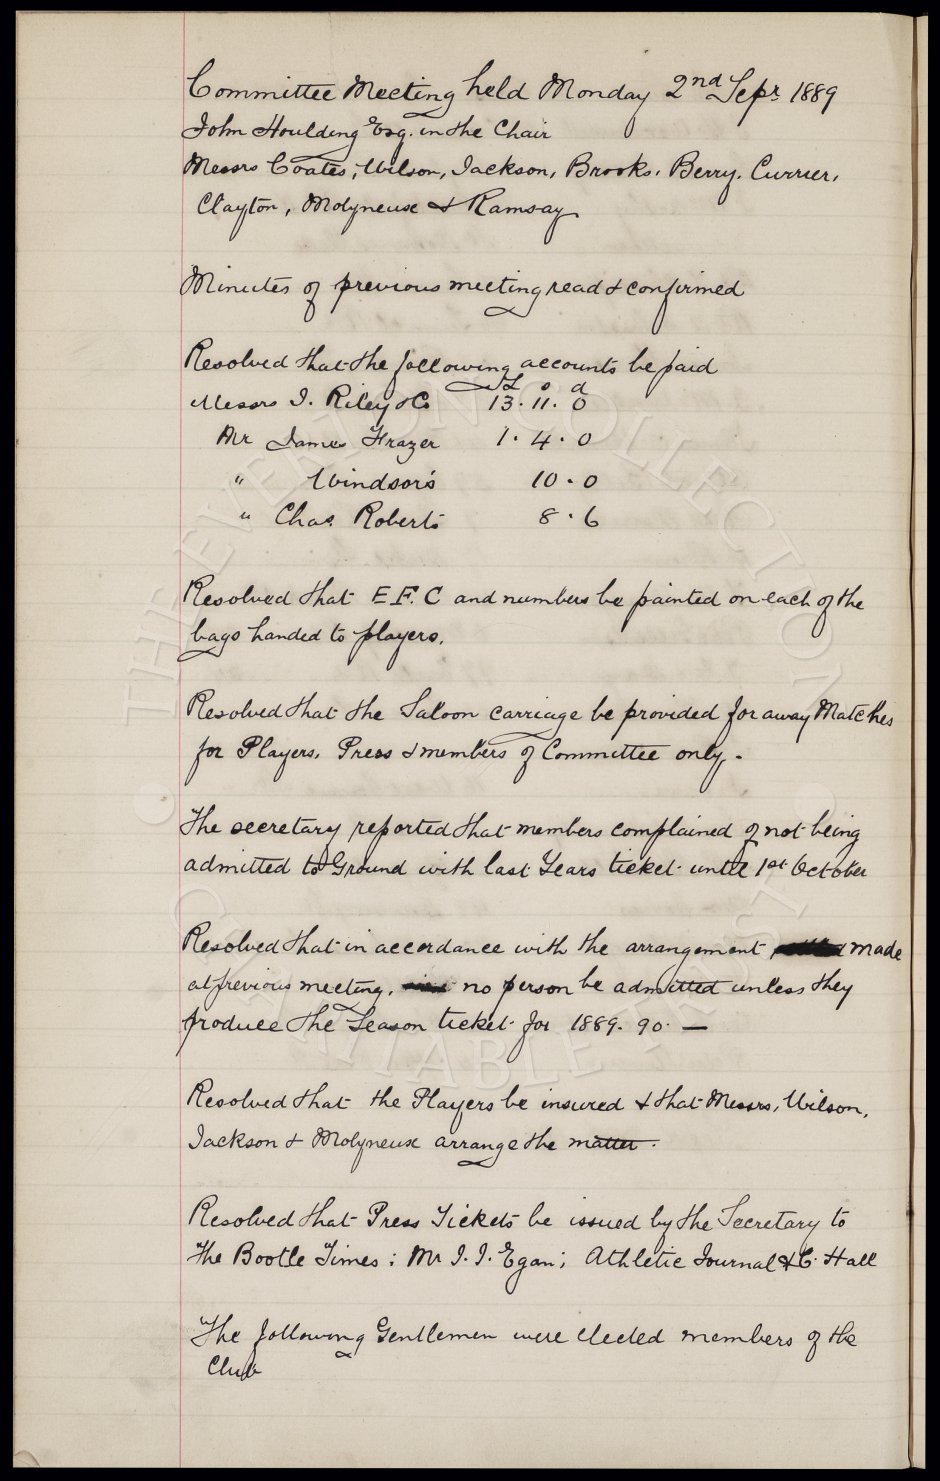 Committee Meeting held Monday 2nd Sepr 1889
John Houlding Esq. in the Chair
Messrs Coates, Wilson, Jackson, Brooks, Berry, Currier,
Clayton, Molyneux & Ramsay
Minutes of previous meeting read & confirmed
Resolved that the following accounts be paid
£ s d
Messrs J. Riley & Co 13. 11. 0
Mr James Frazer 1. 4. 0
" Windsor's 10. 0
" Chas. Roberts 8. 6
Resolved that E.F.C and numbers be painted on each of the
bags handed to players.
Resolved that the Saloon carriage be provided for away Matches
for Players, Press & members of Committee only.
The secretary reported that members complained of not being
admitted to Ground with last Years ticket until 1st October
Resolved that in accordance with the arrangement made
at previous meeting, no person be admitted unless they
produce the Season ticket for 1889. 90. —
Resolved that the Players be insured & that Messrs, Wilson,
Jackson & Molyneux arrange the matter.
Resolved that Press Tickets be issued by the Secretary to
the Bootle Times; Mr J. J. Egan; Athletic Journal & C. Hall
The following Gentlemen were elected members of the
Club
THE EVERTON COLLECTION
CHARITABLE TRUST